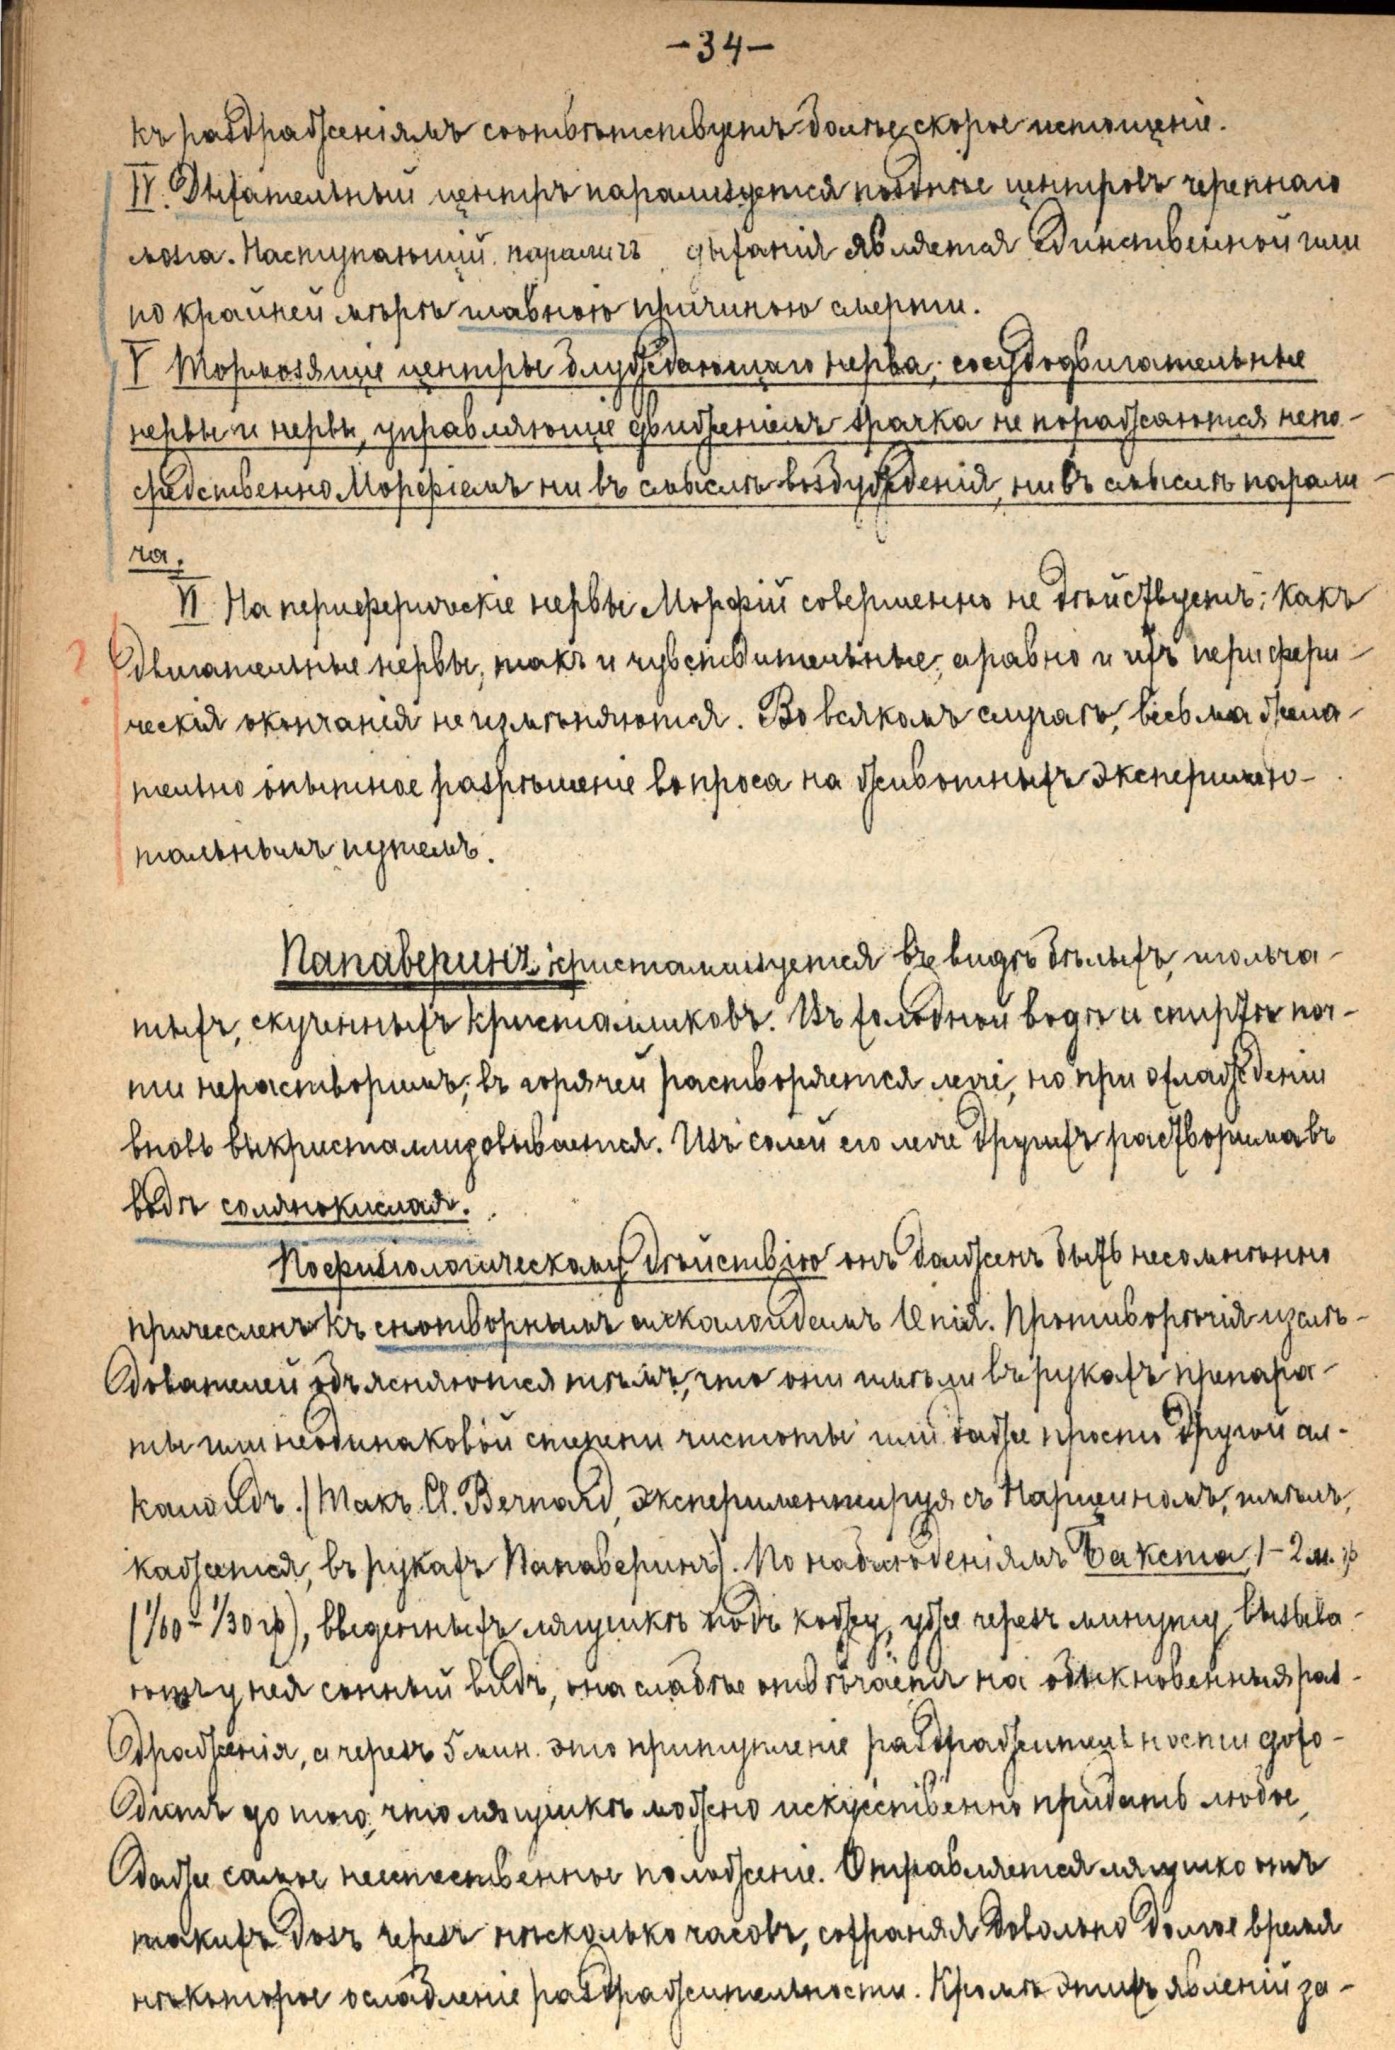 -34-
къ раздраженіямъ соотвѣтствуетъ болѣе скорое истощеніе.
IV. Дыхательный центръ парализуется позднѣе центровъ черепнаго
мозга. Наступающій параличъ дыханія является единственной или
по крайней мѣрѣ главною причиною смерти.
V Тормозящіе центры блуждающаго нерва, сосудодвигательные
нервы и нервы, управляющіе движеніемъ зрачка не поражаются непо-
средственно Морфіемъ ни въ смыслѣ возбужденія, ни въ смыслѣ парали-
ча.
VI На периферическіе нервы Морфій совершенно не дѣйствуетъ; какъ
?
двигательные нервы, такъ и чувствительные, а равно и ихъ перифери-
ческія окончанія не измѣняются. Во всякомъ случаѣ, весьма жела-
тельно опытное разрѣшеніе вопроса на животныхъ эксперимен-
тальнымъ путемъ.
Папаверинъ кристаллизуется въ видѣ бѣлыхъ, игольча-
тыхъ, скученныхъ кристалликовъ. Въ холодной водѣ и спиртѣ поч-
ти нерастворимъ; въ горячей растворяется легче, но при охлажденіи
вновь выкристаллизовывается. Изъ солей его легче другихъ растворима въ
водѣ солянокислая.
По физіологическому дѣйствію онъ долженъ быть несомнѣнно
причесленъ къ снотворнымъ алкалоидамъ Опія. Противорѣчія изслѣ-
дователей объясняются тѣмъ, что они имѣли въ рукахъ препара-
ты или неодинаковой степени чистоты или даже просто другой ал-
калоидъ. (Такъ Cl. Bernard, экспериментируя съ Нарцеиномъ, имѣлъ,
кажется, въ рукахъ Папаверинъ). По наблюденіямъ Бакста 1-2 м. гр
(1/60 - 1/30 гр), введенныхъ лягушкѣ подъ кожу, уже черезъ минуту вызыва-
ютъ у нея сонный видъ, она слабѣе отвѣчаетъ на обыкновенныя раз-
драженія, а черезъ 5 мин. это притупленіе раздражительности дохо-
дитъ до того, что лягушкѣ можно искусственно придать любое,
даже самое неестественное положеніе. Оправляется лягушка отъ
такихъ дозъ черезъ нѣсколько часовъ, сохраняя довольно долгое время
нѣкоторое ослабленіе раздражительности. Кромѣ этихъ явленій за-